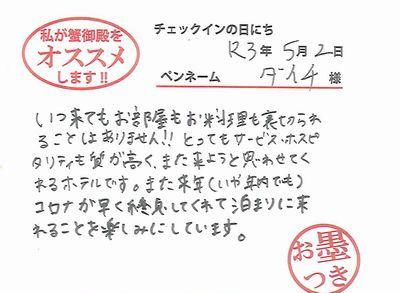 私が蟹御殿を
オススメ
します!!
チェックインの日にち
R3年 5月 2日
ペンネーム ダイチ 様
いつ来てもお部屋もお料理も裏切られ
ることはありません!! とってもサービス・ホスピ
タリティも質が高く、また来ようと思わせてく
れるホテルです。また来年(いや年内でも)
コロナが早く終息してくれて泊まりに来
れることを楽しみにしています。
お墨
つき